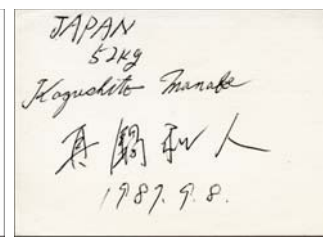 JAPAN
52kg
Kazushito Manabe
真鍋和人
1987.9.8.